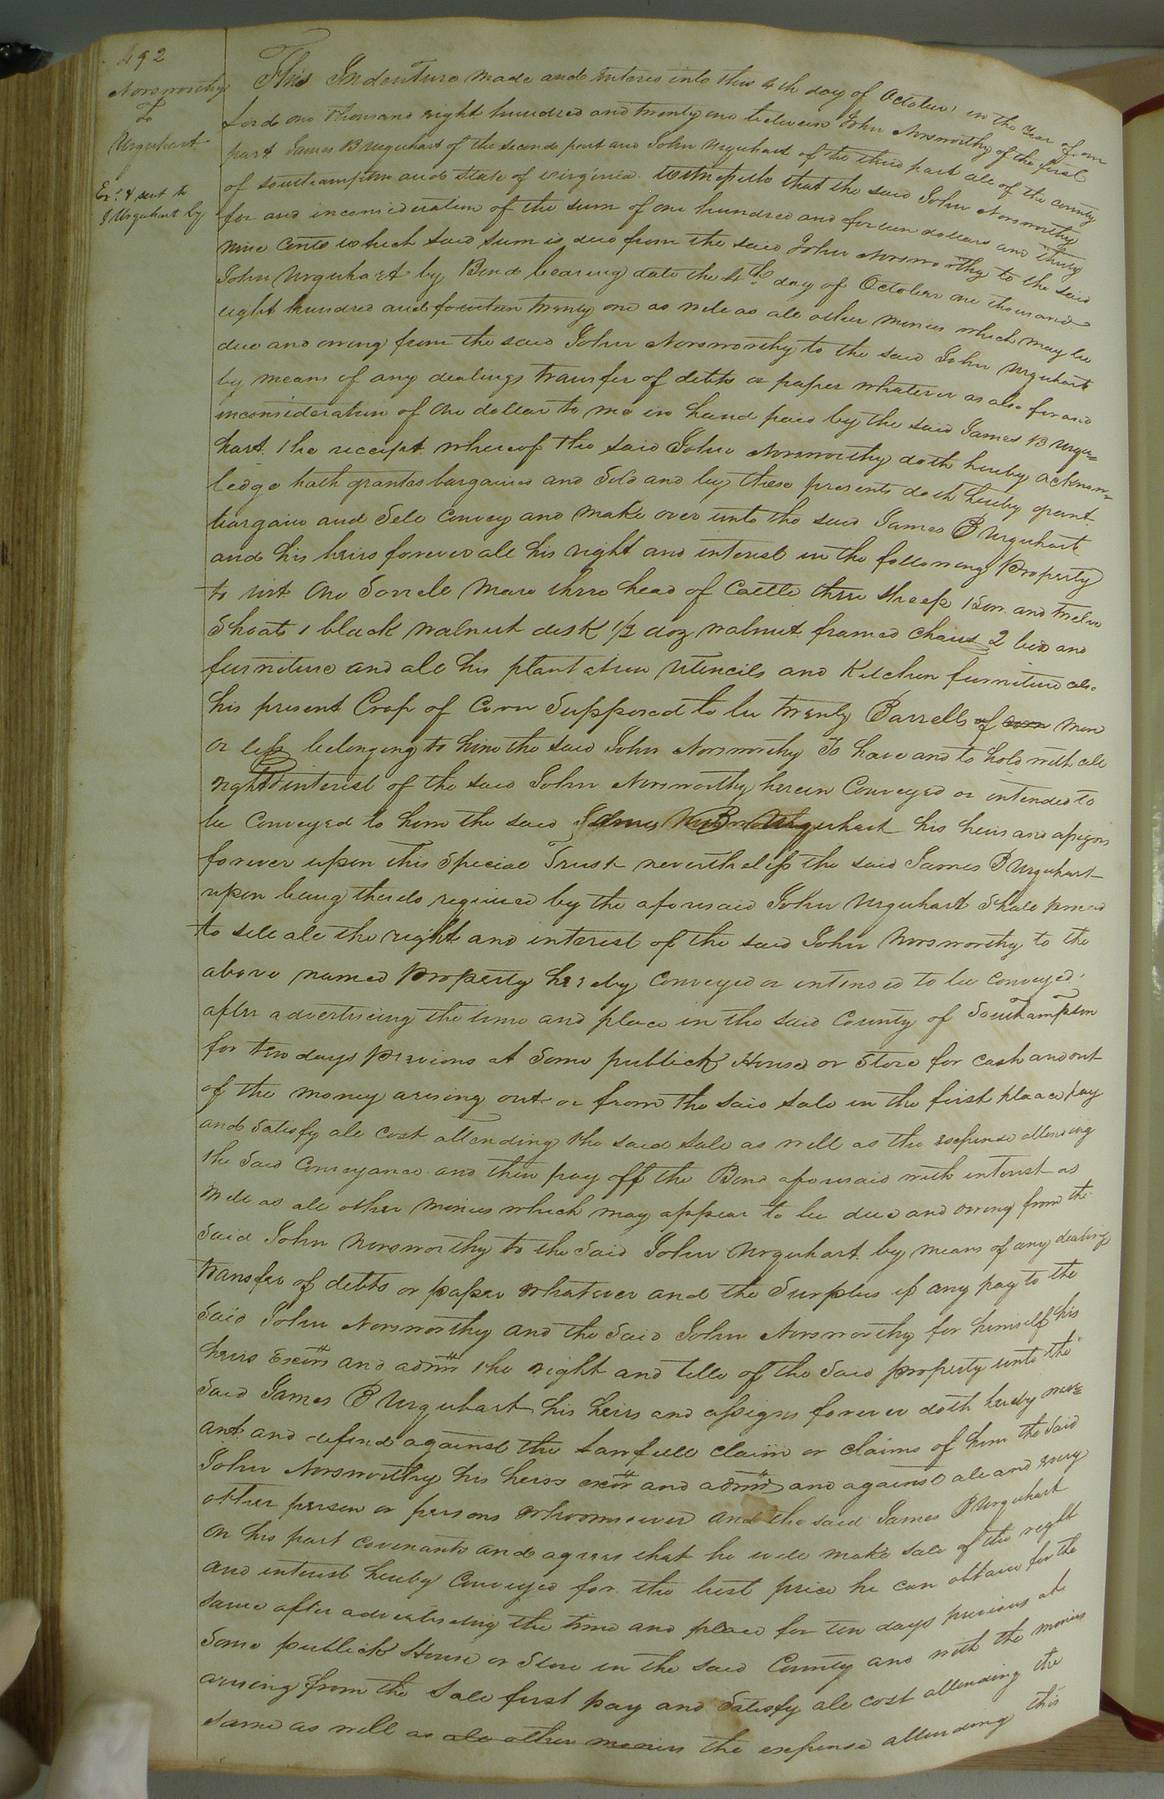 492
Norsworthy
To
Urquhart
Ex.d & sent to
J Urquhart by
This Indenture made and enteres into this 4th day of October in the Year of our
Lord one thousand eight hundred and twenty one between John Norsworthy of the first
part James B Urquhart of the second part and John Urquhart of the third part all of the county
of Southampton and State of Virginia. Witnesseth that the said John Norsworthy
for and inconsideration of the sum of one hundred and forteen dollars and thirty
nine Cents which said sum is due from the said John Norsworthy to the said
John Urquhart by Bond bearing date the 4th day of October one thousand
eight hundred and fourteen twenty one as well as all other monies which may be
due and owing from the said John Norsworthy to the said John Urquhart
by means of any dealings transfer of debts or paper whatever as also for and
inconsideration of one dollar to me in hand paid by the said James B Urqu=
hart the receipt whereof the said John Norsworthy doth hereby acknow=
ledge hath grantes bargained and Sold and by these presents doth hereby grant
bargain and Sell Convey and make over unto the said James B Urquhart
and his heirs forever all his right and interest in the following property
to wit One Sorrele Mare three head of Cattle three Sheep 1 Sow and twelve
Shoats 1 black walnut desk 1/2 doz walnut framed chairs 2 beds and
furniture and all his plantation Utencils and Kitchen furniture also
his present Crop of Corn Supposed to be twenty Barrells of corn more
or less belonging to him the said John Norsworthy To have and to hold with all
right & interest of the said John Norsworthy herein Conveyed or intended to
be Conveyed to him the said James B Urquhart his heirs and assigns
forever upon this Special Trust nevertheless the said James B Urquhart
upon being thereto required by the aforesaid John Urquhart Shall proceed
to sell all the right and interest of the said John Norsworthy to the
above named property hereby Conveyed or intended to be conveyed
after advertising the time and place in the said County of Southampton
for ten days previous at Some publick House or Store for cash and out
of the money arising out or from the said Sale in the first plaace pay
and Satisfy all cost attending the said Sale as well as the expense attending
the Said Conveyance and then pay off the Bond aforesaid with interest as
well as all other Monies which may appear to be due and owing from the
Said John Norsworthy to the Said John Urquhart by means of any dealings
transfer of debts or paper whatever and the Surplus if any pay to the
Said John Norsworthy and the Said John Norsworthy for himself his
heirs Exetrs and admrs the right and title of the Said property unto the
Said James B Urquhart his heirs and assigns forever doth hereby warr=
ant and defend against the Lawfull claim or claims of him the Said
John Norsworthy his heirs exetrs and admrs and against all and every
other person or persons whoomsoever and the said James B Urquhart
on his part covenants and agrees that he will make Sale of the right
and interest hereby Conveyed for the best price he can obtain for the
Same after advertising the time and place for ten days previous at
Some publick House or Store in the said County and with the monies
arising from the Sale first pay and Satisfy all cost attending the
Same as well as all other monies the expense attending this